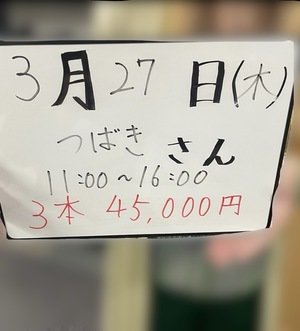 3月27日(木)
つばきさん
11:00~16:00
3本 45,000円